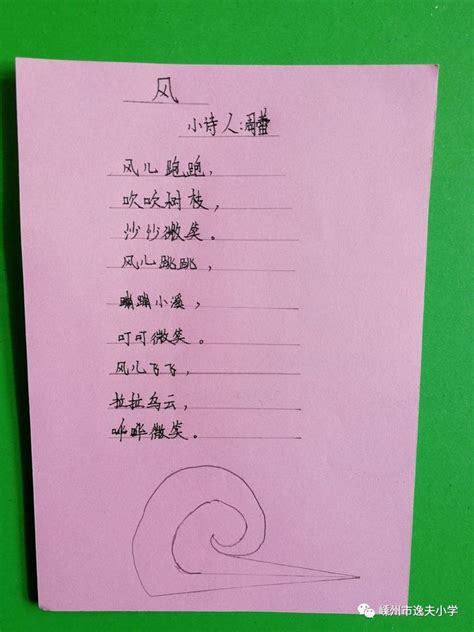 风
小诗人:周蕾
风儿跑跑，
吹吹树枝，
沙沙微笑。
风儿跳跳，
蹦蹦小溪，
叮叮微笑。
风儿飞飞，
拉拉乌云，
哗哗微笑。
嵊州市逸夫小学